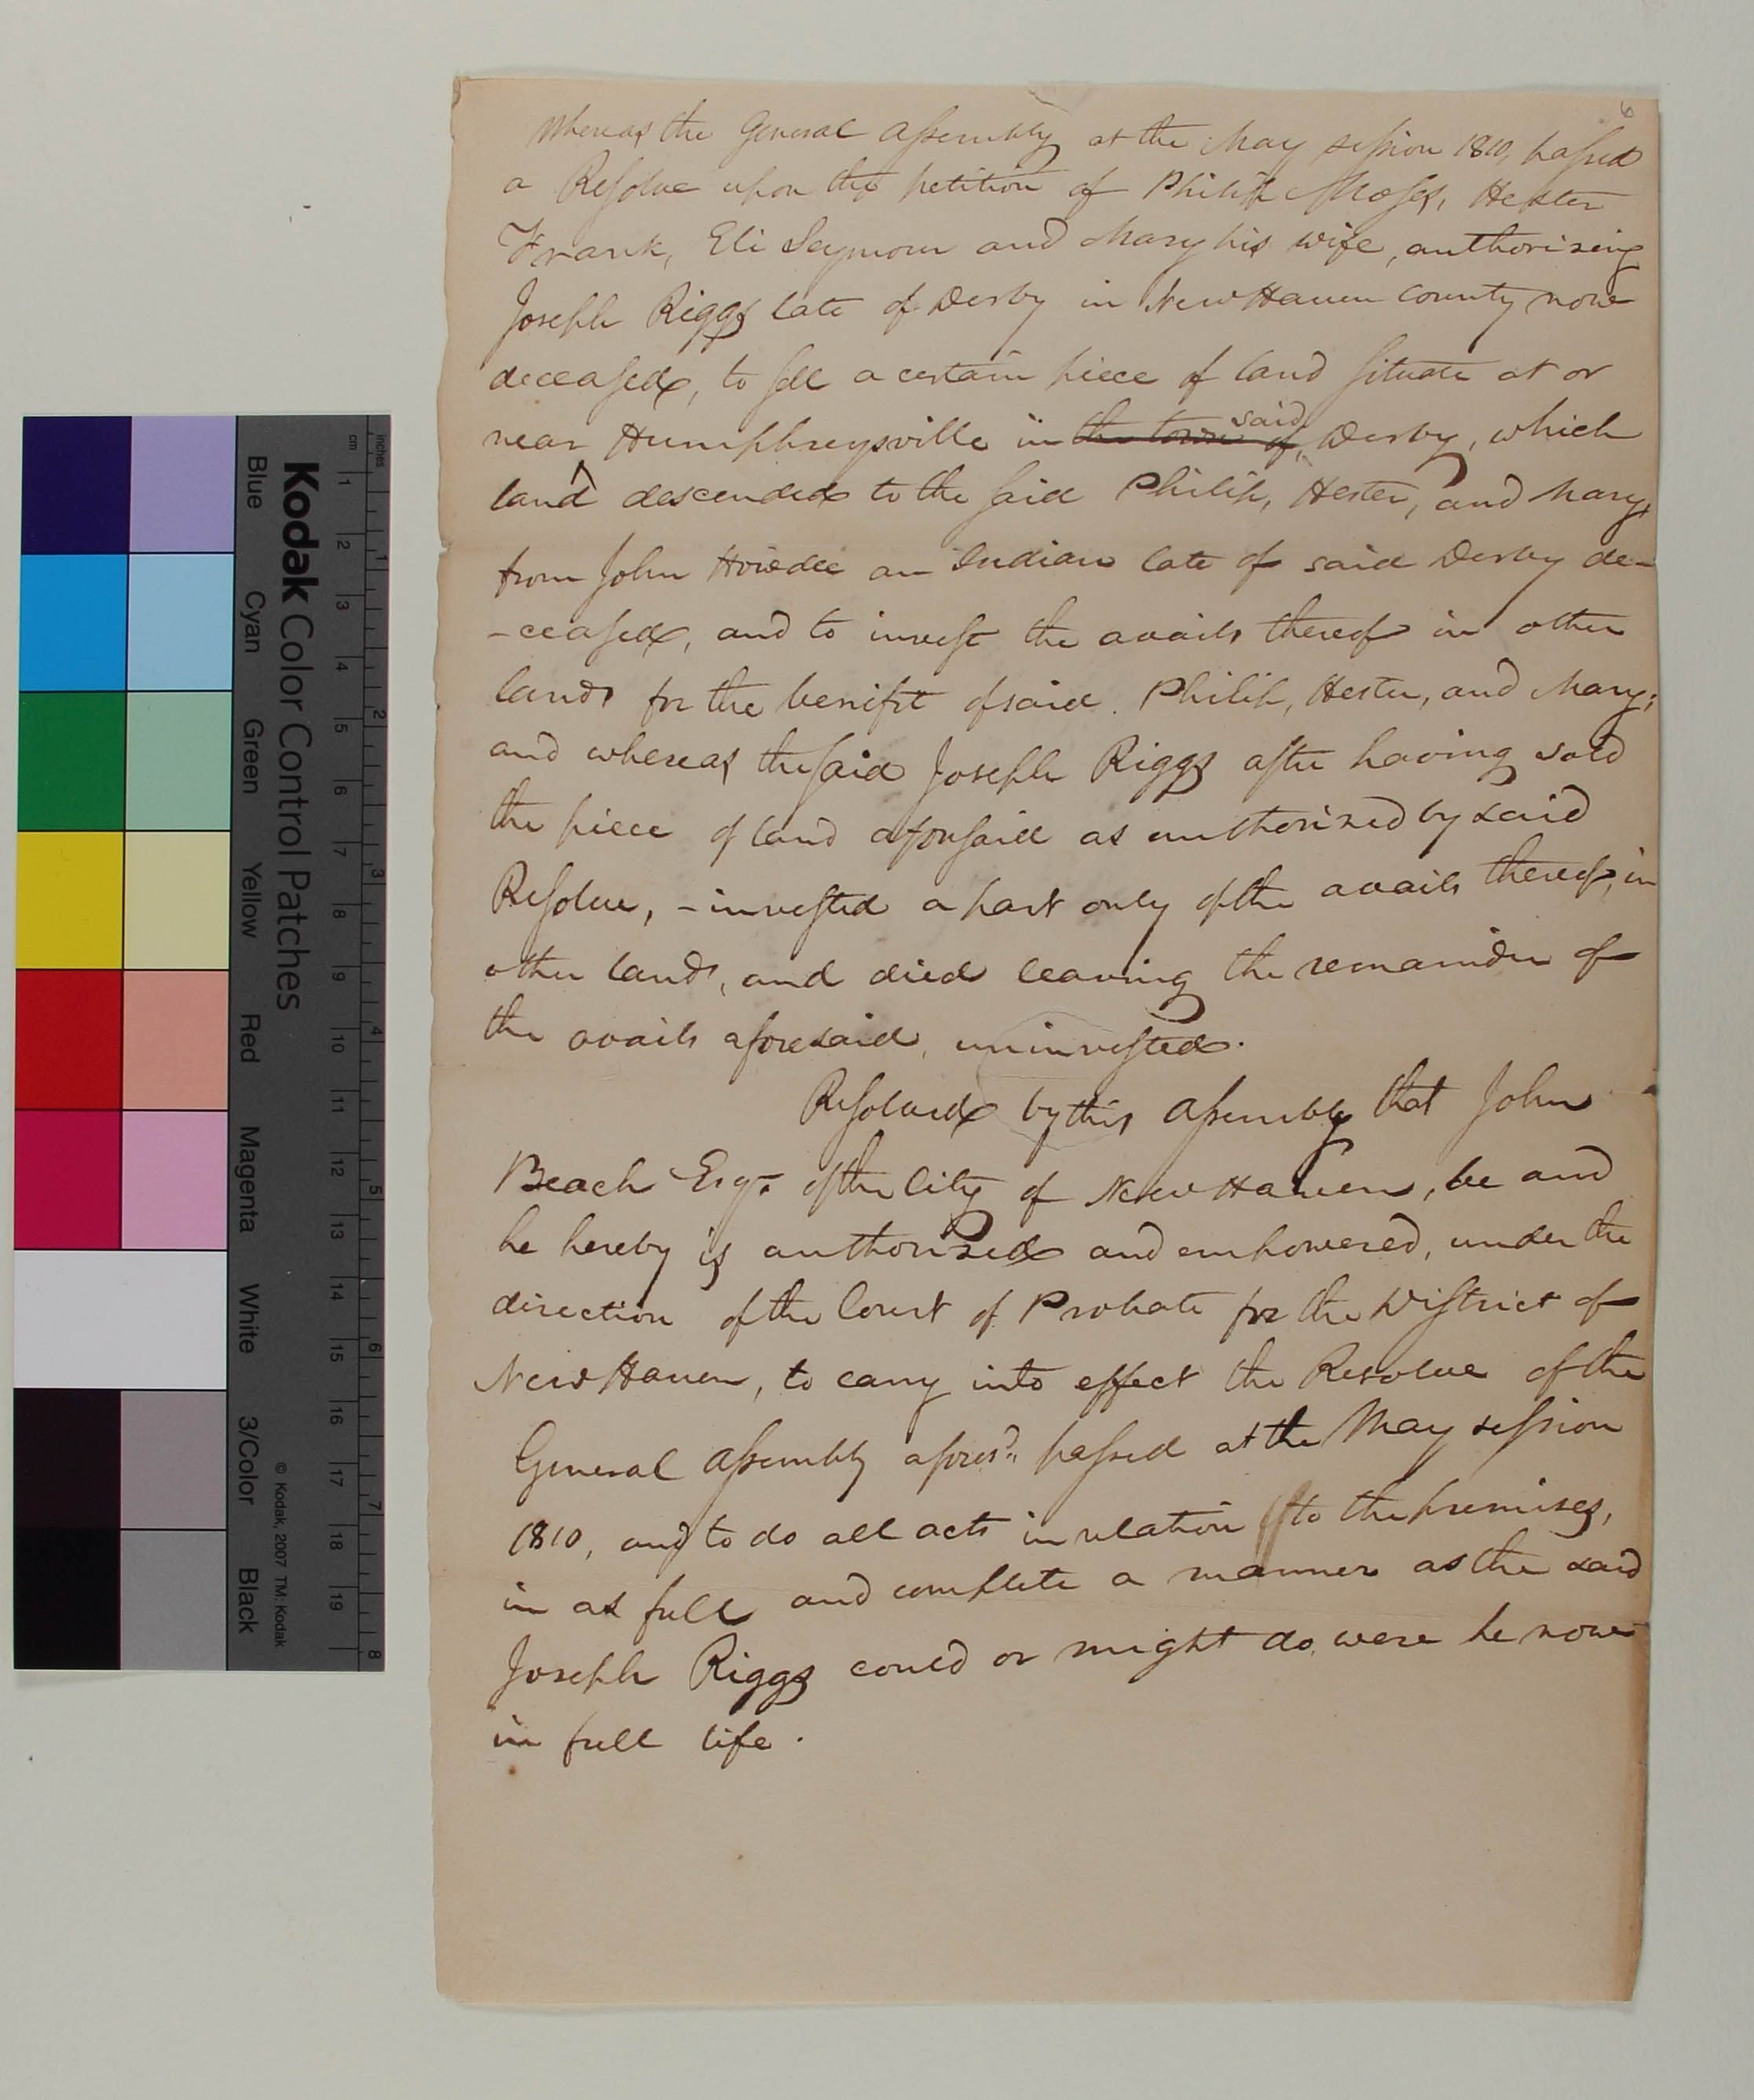 6
Whereas the General Assembly at the May session 1810, passed
a Resolve upon the petition of Philip Moses, Hester
Frank, Eli Seymour and Mary his wife, authorising
Joseph Riggs late of Derby in New Haven County now
deceased, to sell a certain piece of land situate at or
near Humphreysville in the town of said Derby, which
land descended to the said Philip, Hester, and Mary,
from John Howdee an Indian late of said Derby de-
-ceased, and to invest the avails thereof in other
lands for the benifit of said Philip, Hester, and Mary;
and whereas the said Joseph Riggs after having sold
the piece of land aforesaid as authorized by said
Resolve, - invested a part only of the avails thereof, in
other lands, and died leaving the remainder of
the avails aforesaid, uninvested.
Resolved by this Assembly that John
Beach Esqr. of the City of New Haven, be and
he hereby is authorized and empowered, under the
direction of the Court of Probate for the District of
New Haven, to carry into effect the Resolve of the
General Assembly aforesd. passed at the May session
1810, and to do all acts in relation to the premises,
in as full and complete a manner as the said
Joseph Riggs could or might do, were he now
in full life.
Kodak Color Control Patches
Blue Cyan Green Yellow Red Magenta White 3/Color Black
© Kodak, 2007 TM: Kodak
cm 1 2 3 4 5 6 7 8 9 10 11 12 13 14 15 16 17 18 19
inches 1 2 3 4 5 6 7 8